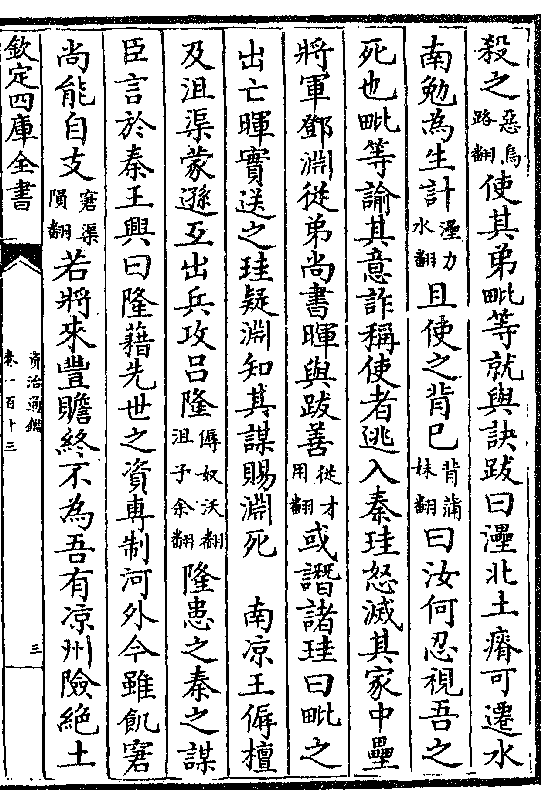 殺之惡烏路翻使其弟毗等就與訣跋曰㶟北土瘠可遷水
南勉為生計㶟力水翻且使之背已背蒲妹翻曰汝何忍視吾之
死也毗等諭其意詐稱使者逃入秦珪怒滅其家中壘
將軍鄧淵從弟尚書暉與跋善從才用翻或譖諸珪曰毗之
出亡暉實送之珪疑淵知其謀賜淵死　南凉王傉檀
及沮渠蒙遜互出兵攻呂隆傉奴沃翻沮子余翻隆患之秦之謀
臣言於秦王興曰隆藉先世之資專制河外今雖飢窘
尚能自支窘渠隕翻若將來豐贍終不為吾有凉州險絶土
欽定四庫全書
資治通鑑
卷一百十三
三